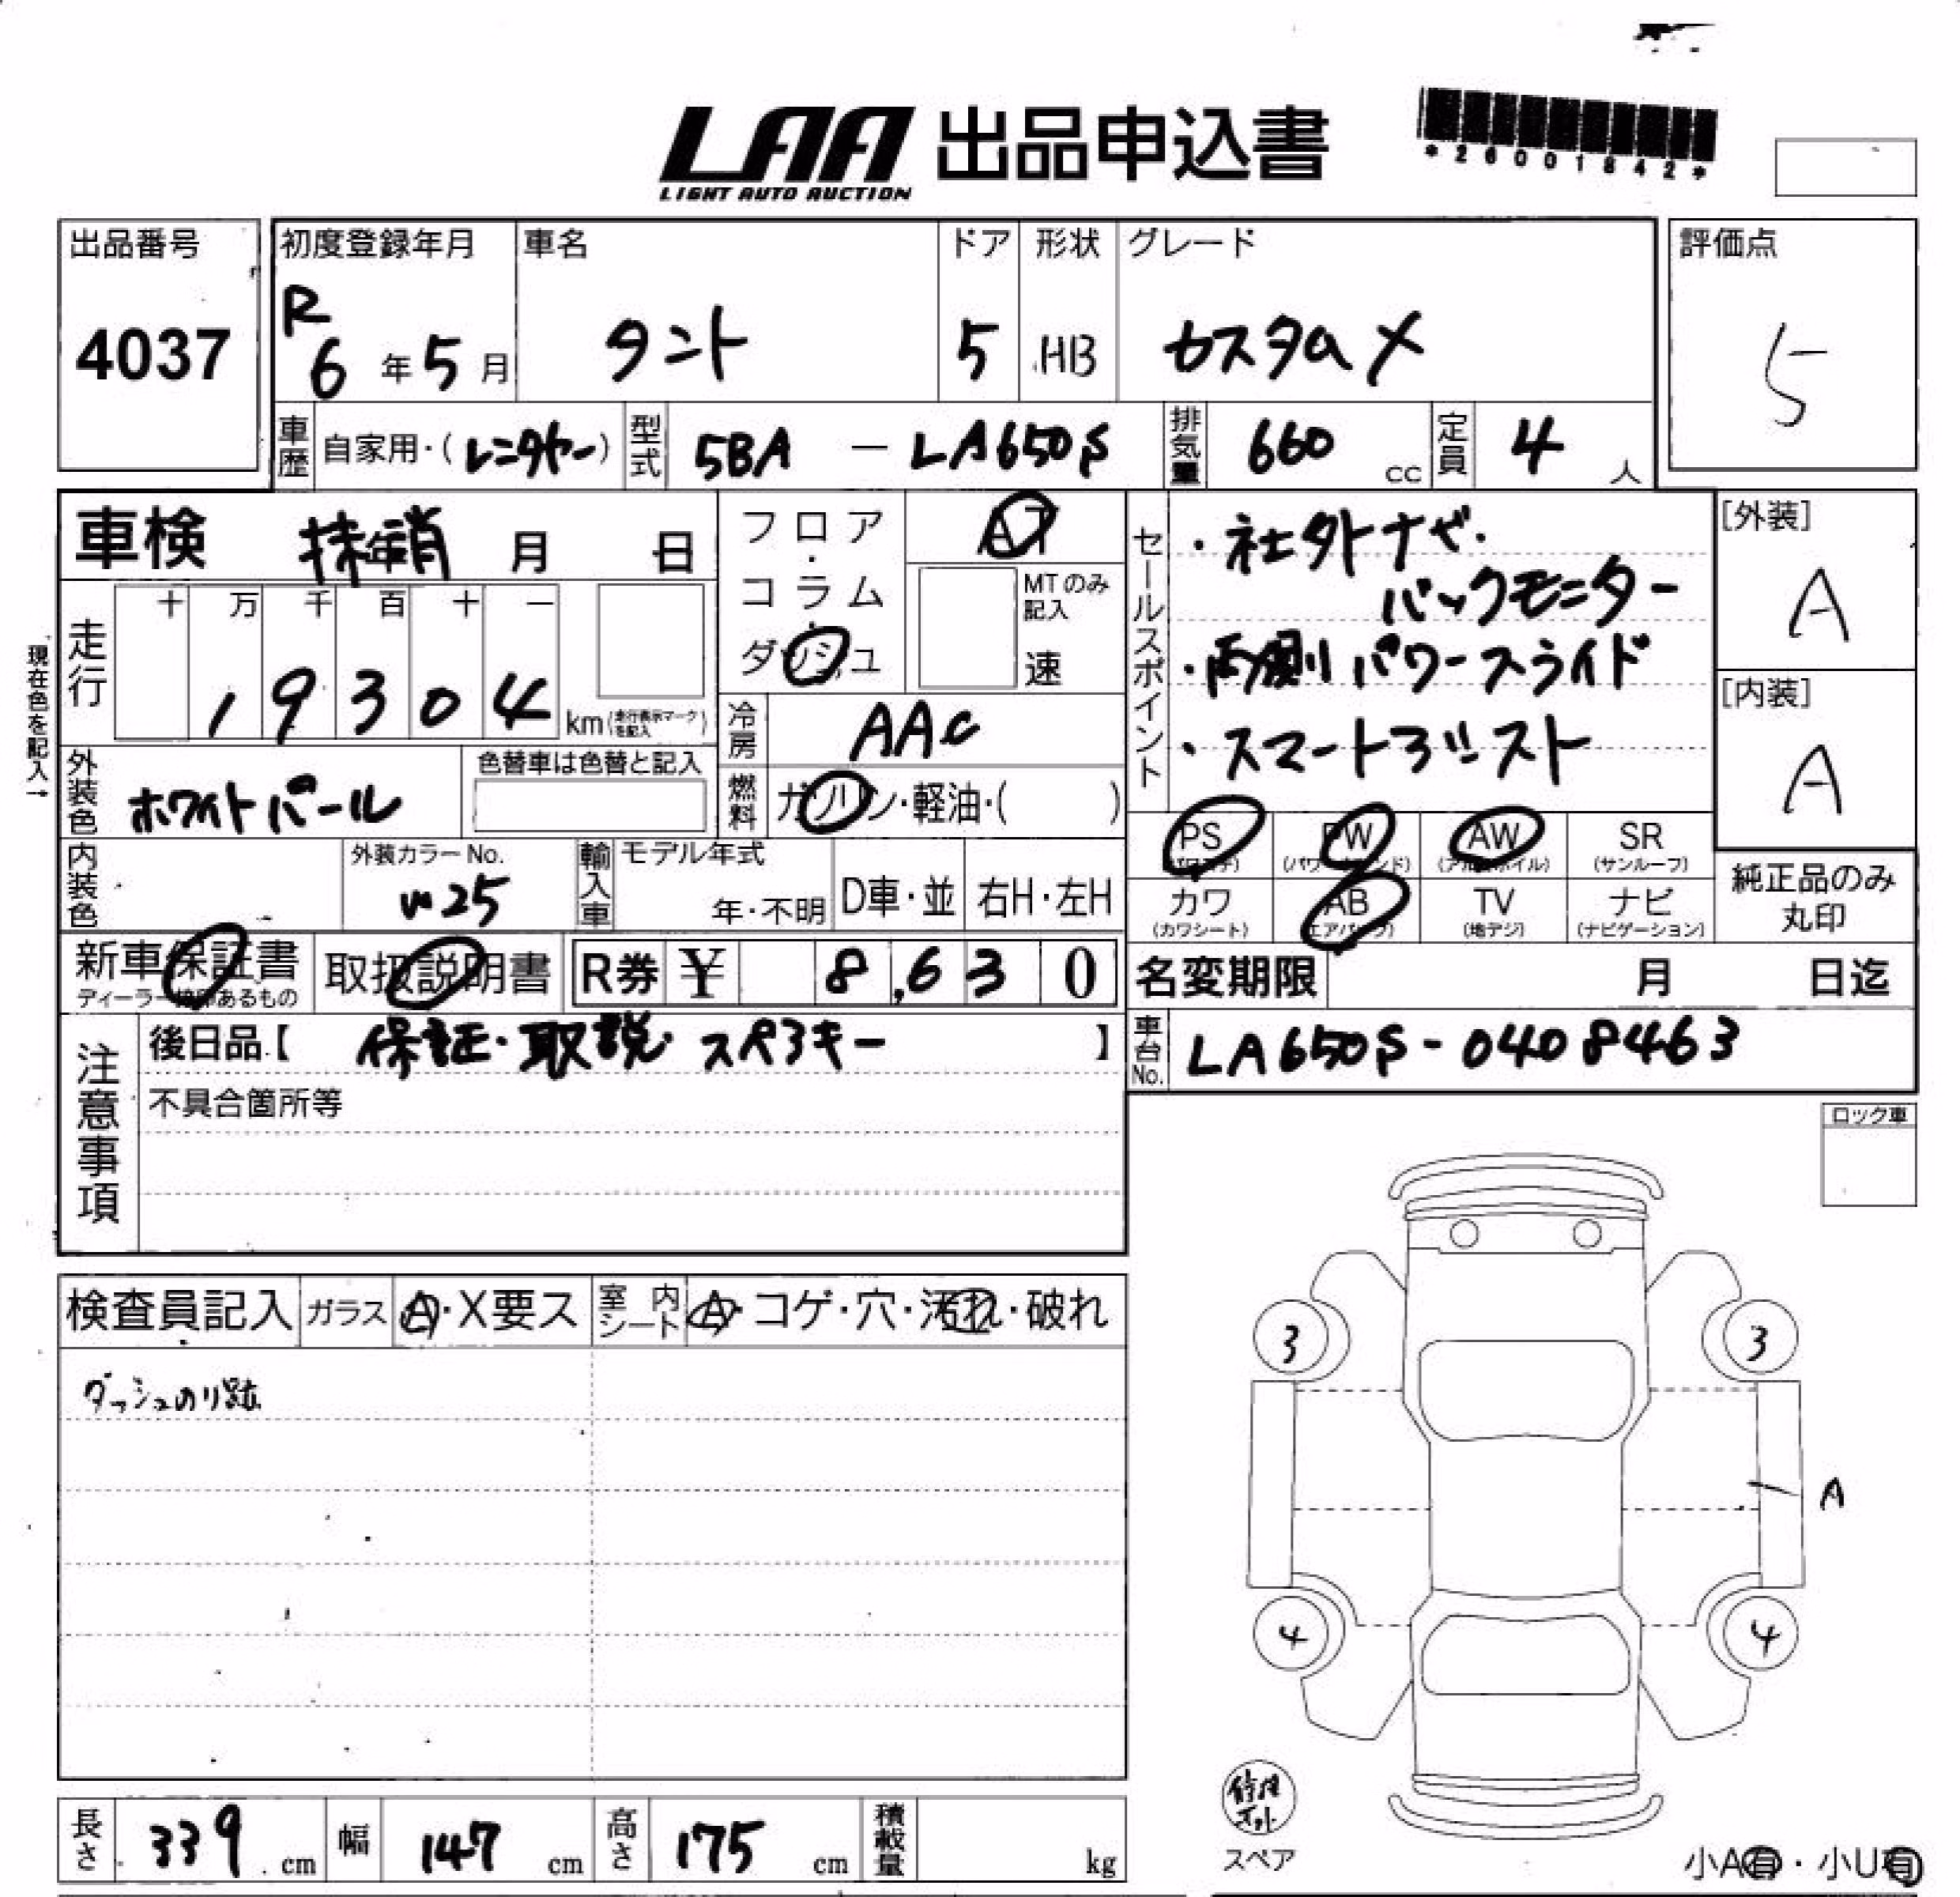 LAA 出品申込書
LIGHT AUTO AUCTION
*26001842*
出品番号
4037
初度登録年月
R
6 年 5 月
車名
タント
ドア
5
形状
HB
グレード
カスタムX
評価点
5
車歴 自家用・( レンタカー )
型式 5BA － LA650S
排気量 660 cc
定員 4 人
車検 抹消 年 月 日
現在色を記入→
走行
十 万 千 百 十 一
19304 km (走行表示マークを記入)
フロア・コラム・ダッシュ
AT
MTのみ記入
速
冷房 AAC
燃料 ガソリン・軽油・( )
外装色 ホワイトパール
色替車は色替と記入
内装色
外装カラーNo.
W25
輸入車
モデル年式
年・不明
D車・並
右H・左H
セールスポイント
・社外ナビ・
バックモニター
・両側パワースライド
・スマートアシスト
[外装]
A
[内装]
A
PS (パワステ)
PW (パワーウィンド)
AW (アルミホイル)
SR (サンルーフ)
カワ (カワシート)
AB (エアバック)
TV (地デジ)
ナビ (ナビゲーション)
純正品のみ丸印
新車保証書
ディーラー捺印あるもの
取扱説明書
R券 ¥ 8,630
名変期限 月 日迄
注意事項
後日品【 保証・取説・スペアキー 】
不具合箇所等
車台No. LA650S-0408463
ロック車
検査員記入
ガラス A・X要ス
室内シート A・コゲ・穴・汚れ・破れ
ダッシュのり跡
3
3
A
4
4
スペア
長さ 339 cm
幅 147 cm
高さ 175 cm
積載量 kg
小A有・小U有